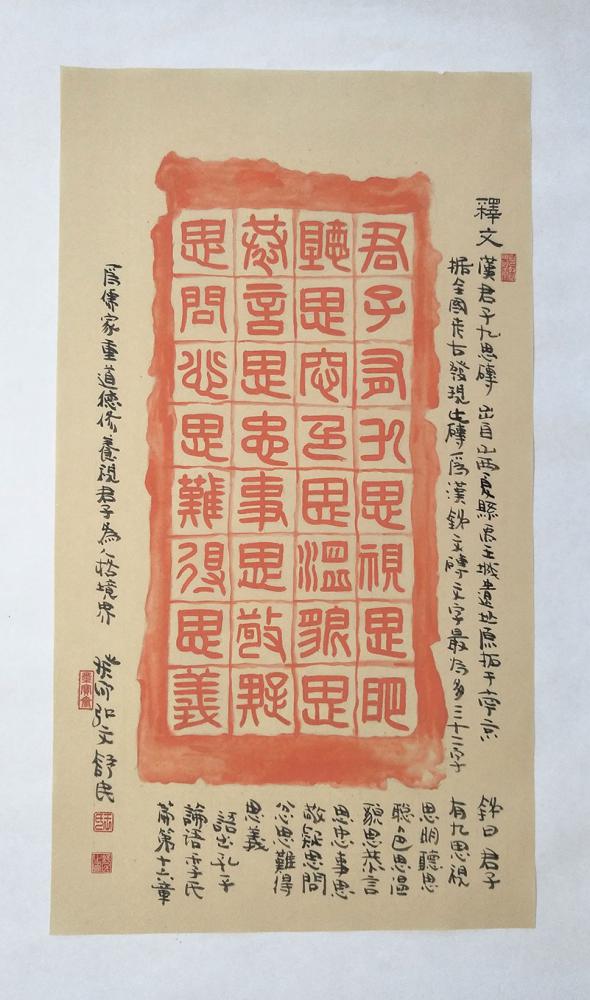 釋文
漢君子九思磚 出自山西夏縣禹王城遺址
據全國考古發現出磚爲漢銘文磚文字最爲多三十二字
君子有九思視思明
聽思悤色思溫貌思
恭言思忠事思敬疑
思問忿思難得思義
銘曰君子
有九思視
思明聽思
聰色思溫
貌思恭言
思忠事思
敬疑思問
忿思難得
思義
語出孔子
論語季氏
篇第十六章
爲儒家重道德修養視君子為人格境界
癸卯弘文舒民